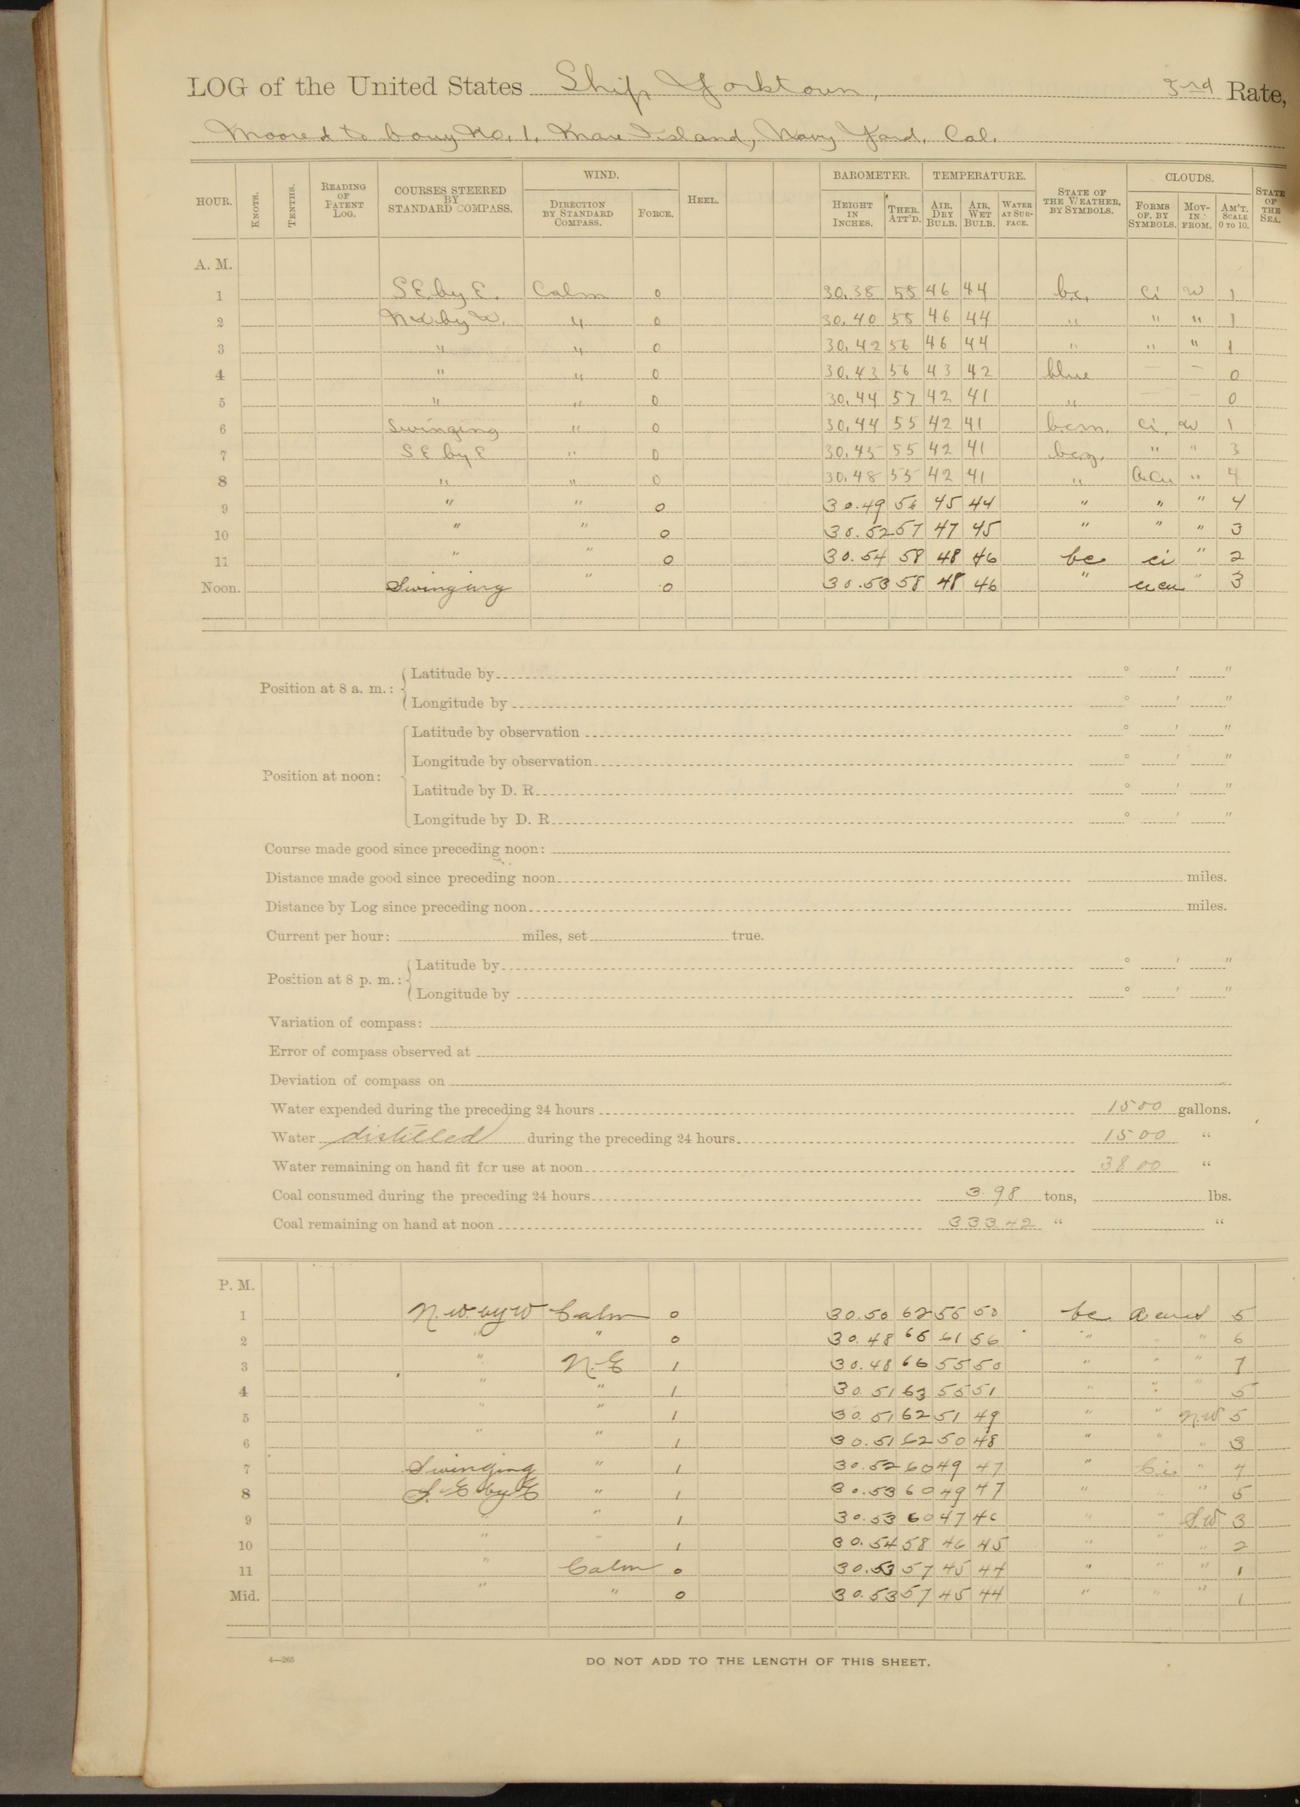 LOG of the United States Ship Yorktown, 3rd Rate,
Moored to buoy No. 1, Mare Island, Navy Yard, Cal.
HOUR. KNOTS. TENTHS. READING OF PATENT LOG. COURSES STEERED BY STANDARD COMPASS. WIND. DIRECTION BY STANDARD COMPASS. FORCE. HEEL. BAROMETER. HEIGHT IN INCHES. THER. ATT'D. TEMPERATURE. AIR, DRY BULB. AIR, WET BULB. WATER AT SURFACE. STATE OF THE WEATHER, BY SYMBOLS. CLOUDS. FORMS OF, BY SYMBOLS. MOVING FROM. AM'T. SCALE 0 TO 10. STATE OF THE SEA.
A. M.
1 SE by E. Calm 0 30.38 55 46 44 bc. ci w 1
2 NW by W. " 0 30.40 55 46 44 " " " 1
3 " " 0 30.42 56 46 44 " " " 1
4 " " 0 30.43 56 43 42 blue — — 0
5 " " 0 30.44 57 42 41 " 0
6 Swinging " 0 30.44 55 42 41 bcm. ci. w 1
7 SE by E " 0 30.45 55 42 41 " " 3
8 " " 0 30.48 55 42 41 " " 4
9 " " 0 30.49 56 45 44 " " " 4
10 " " 0 30.52 57 47 45 " " " 3
11 " " 0 30.54 58 48 46 bc ci " 2
Noon. Swinging " 0 30.53 58 48 46 " cicu " 3
Position at 8 a. m.: Latitude by ° ' "
Longitude by ° ' "
Position at noon: Latitude by observation ° ' "
Longitude by observation ° ' "
Latitude by D. R. ° ' "
Longitude by D. R. ° ' "
Course made good since preceding noon:
Distance made good since preceding noon miles.
Distance by Log since preceding noon miles.
Current per hour: miles, set true.
Position at 8 p. m.: Latitude by ° ' "
Longitude by ° ' "
Variation of compass:
Error of compass observed at
Deviation of compass on
Water expended during the preceding 24 hours 1500 gallons.
Water distilled during the preceding 24 hours 1500 "
Water remaining on hand fit for use at noon 3800 "
Coal consumed during the preceding 24 hours 3.98 tons, lbs.
Coal remaining on hand at noon 333.42 " "
P. M.
1 N.W. by W Calm 0 30.50 62 55 50 bc 5
2 " " 0 30.48 65 61 56 " " " 6
3 " N.E 1 30.48 66 55 50 " " " 7
4 " " 1 30.51 63 55 51 " " " 5
5 " " 1 30.51 62 51 49 " " N.W 5
6 " " 1 30.51 62 50 48 " " " 3
7 Swinging " 1 30.52 60 49 47 " Ci " 4
8 S.E by E " 1 30.53 60 49 47 " " " 5
9 " " 1 30.53 60 47 46 " " S.W 3
10 " " 1 30.54 58 46 45 " " " 2
11 " Calm 0 30.53 57 45 44 " " " 1
Mid. " " 0 30.53 57 45 44 " " " 1
4—265
DO NOT ADD TO THE LENGTH OF THIS SHEET.